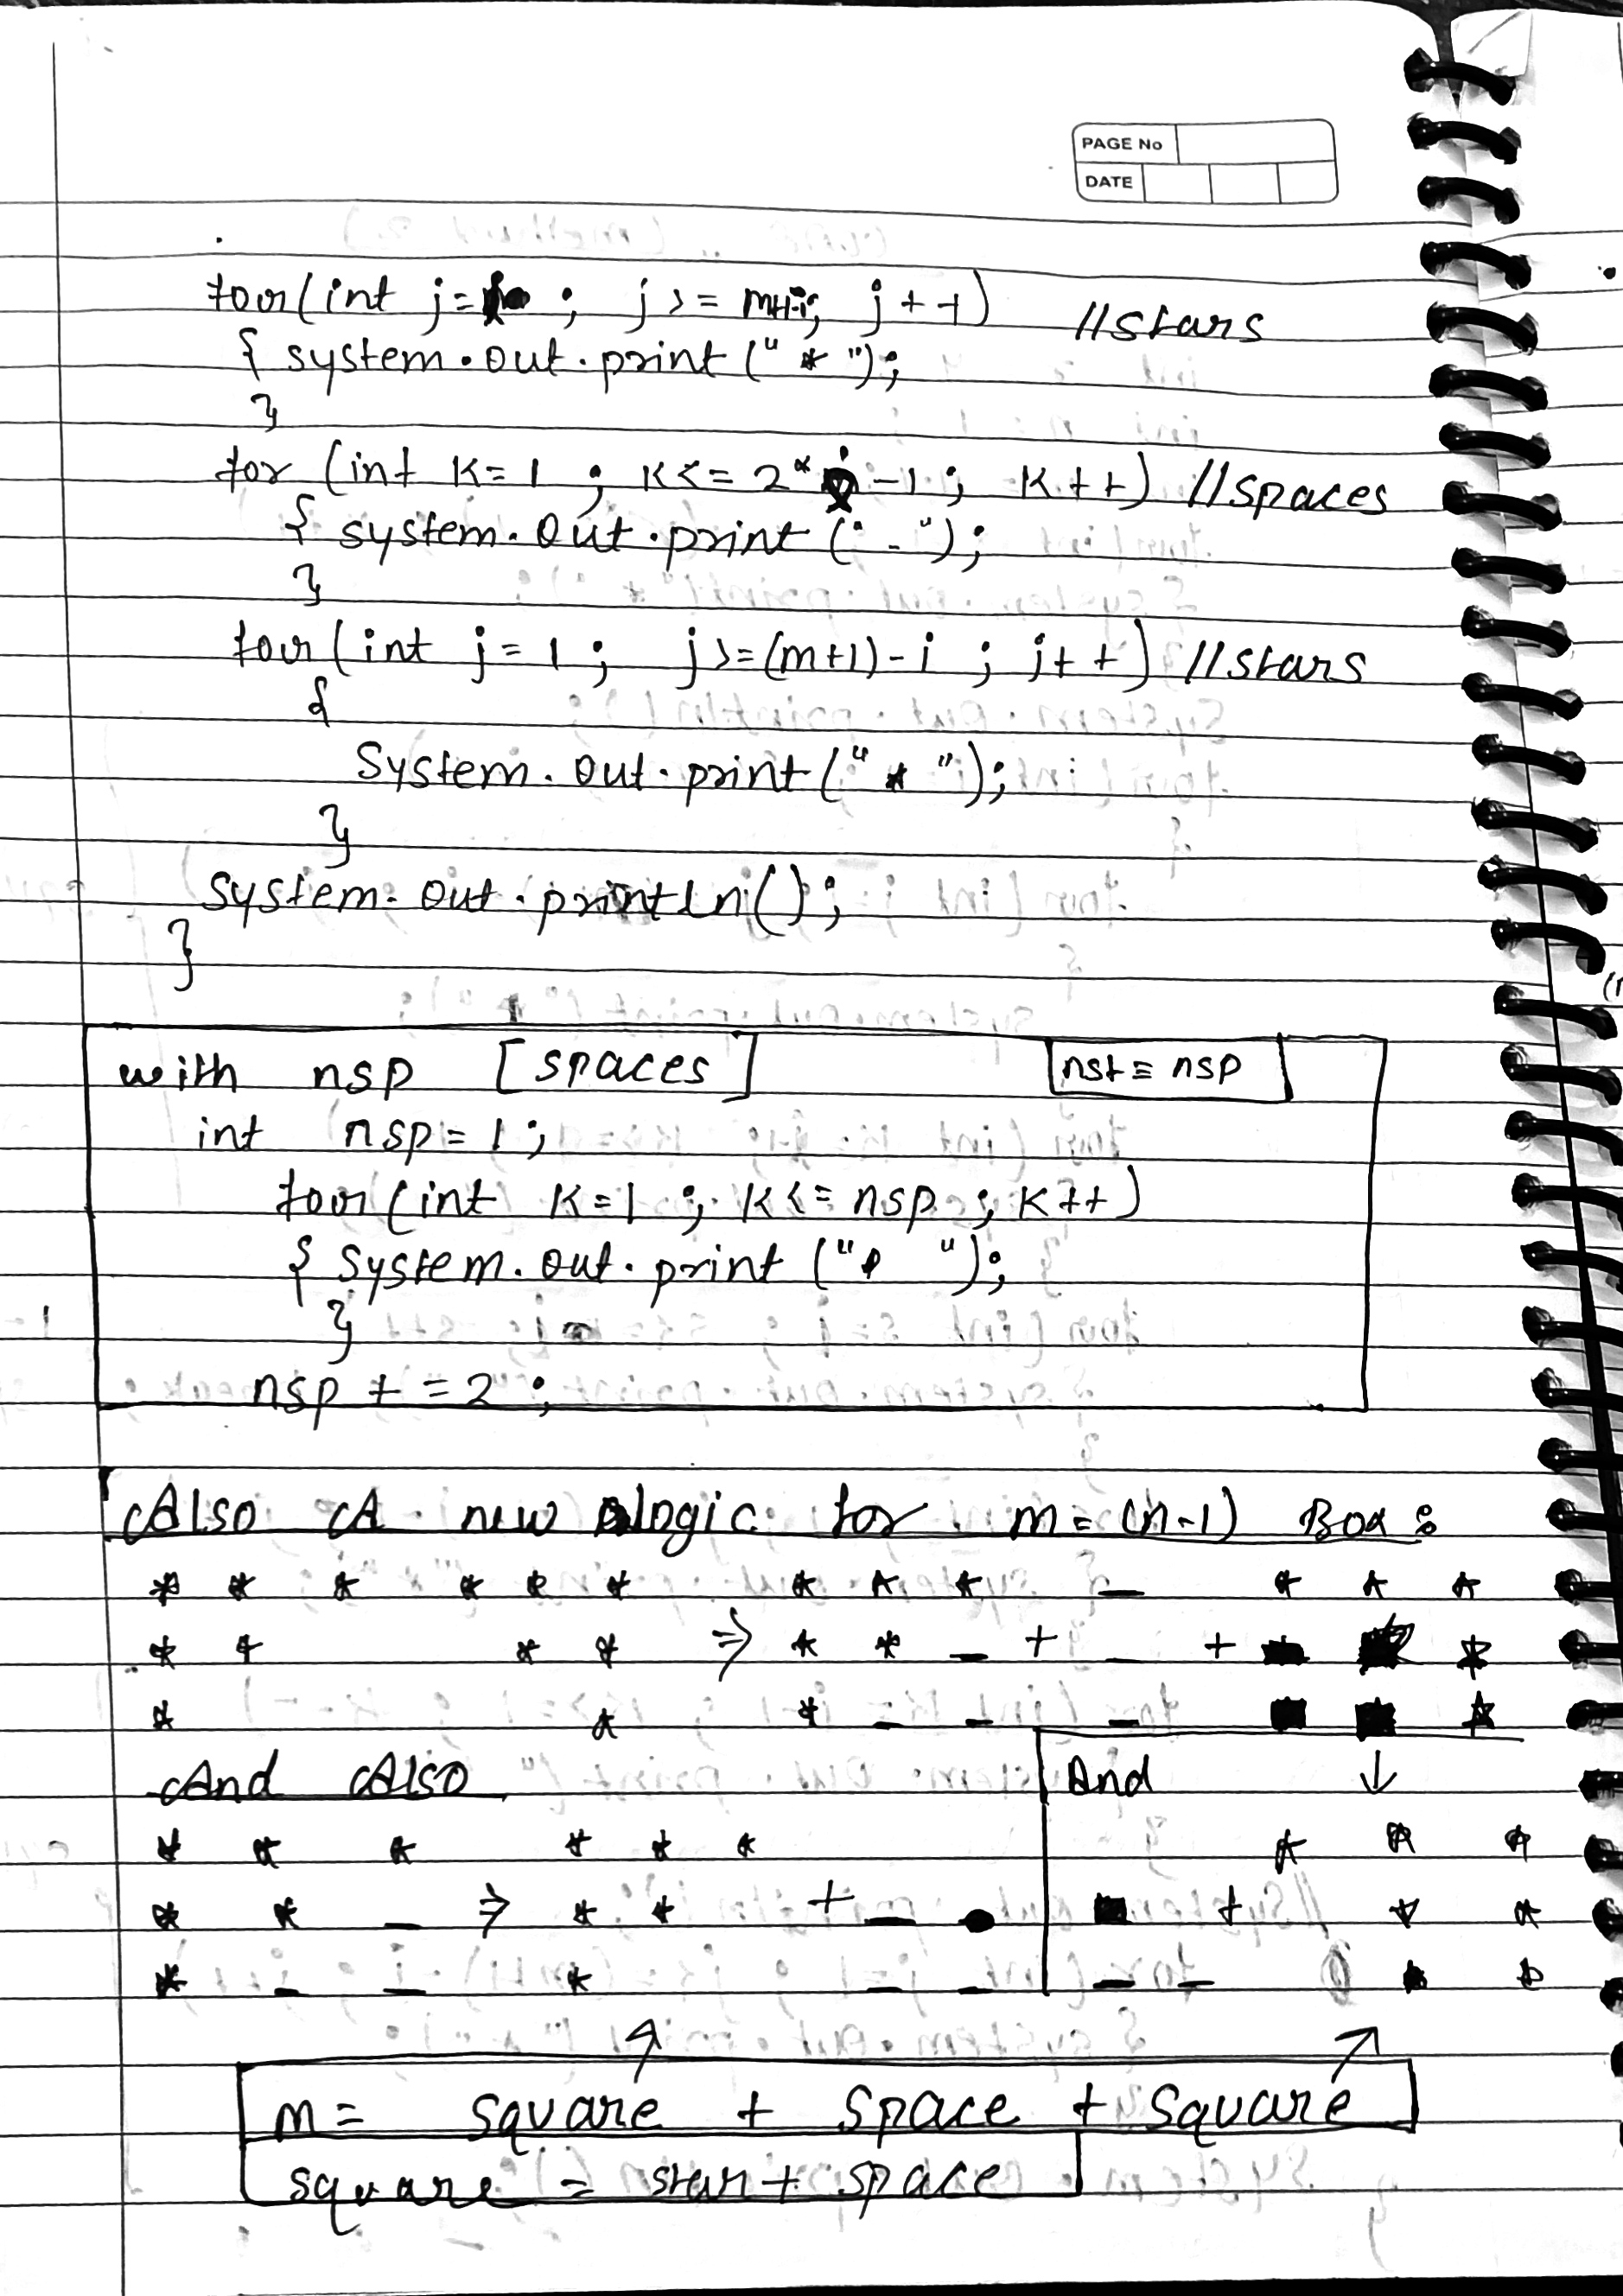 PAGE No
DATE
for(int j= ; j>= m+1-i; j++) //stars
{ system.out.print("*");
}
for (int K=1 ; K<= 2*i-1; K++) //spaces
{ system.out.print(" - ");
}
for(int j=1; j>=(m+1)-i ; j++) //stars
{
System.out.print("*");
}
System.out.println();
}
with nsp [spaces] nst≡nsp
int nsp=1;
for(int K=1 ; K<=nsp ; K++)
{ System.out.print (" ");
}
nsp +=2 ;
Also A new logic for m=(n-1) Box:
* * * * * * * * * _ * * *
* * * * ⇒ * * _ + _ + *
* * * _ _ _ *
And Also And ↓
* * * * * * * * *
* * _ ⇒ * * + _ + * *
* _ _ * _ _ _ _ *
m= square + space + square
square = star + space